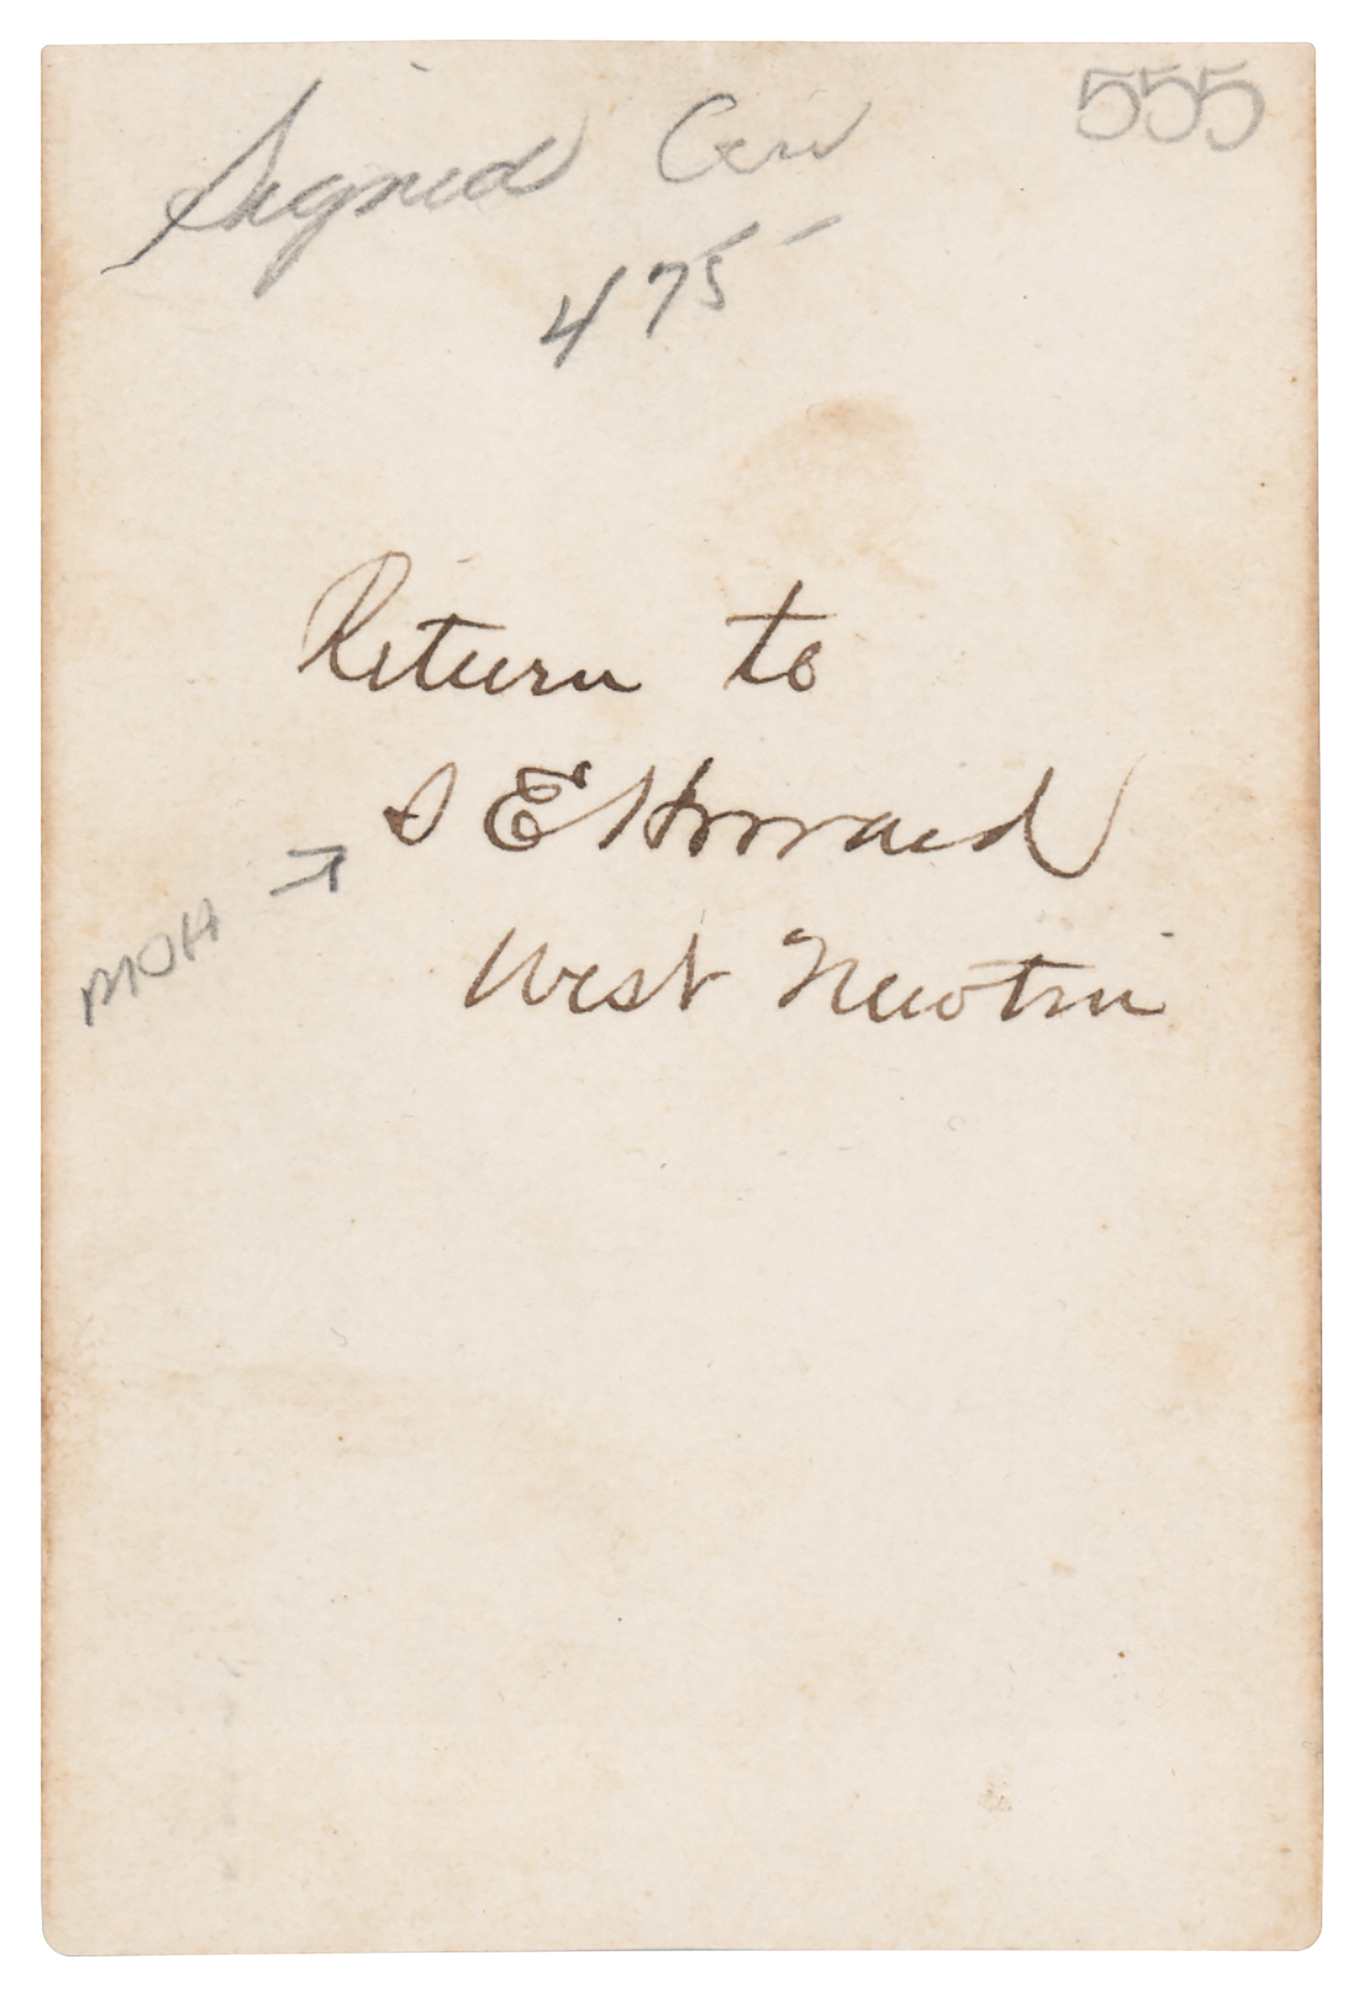 555
Signed
475-
Return to
S E Howard
MOH →
West Newton